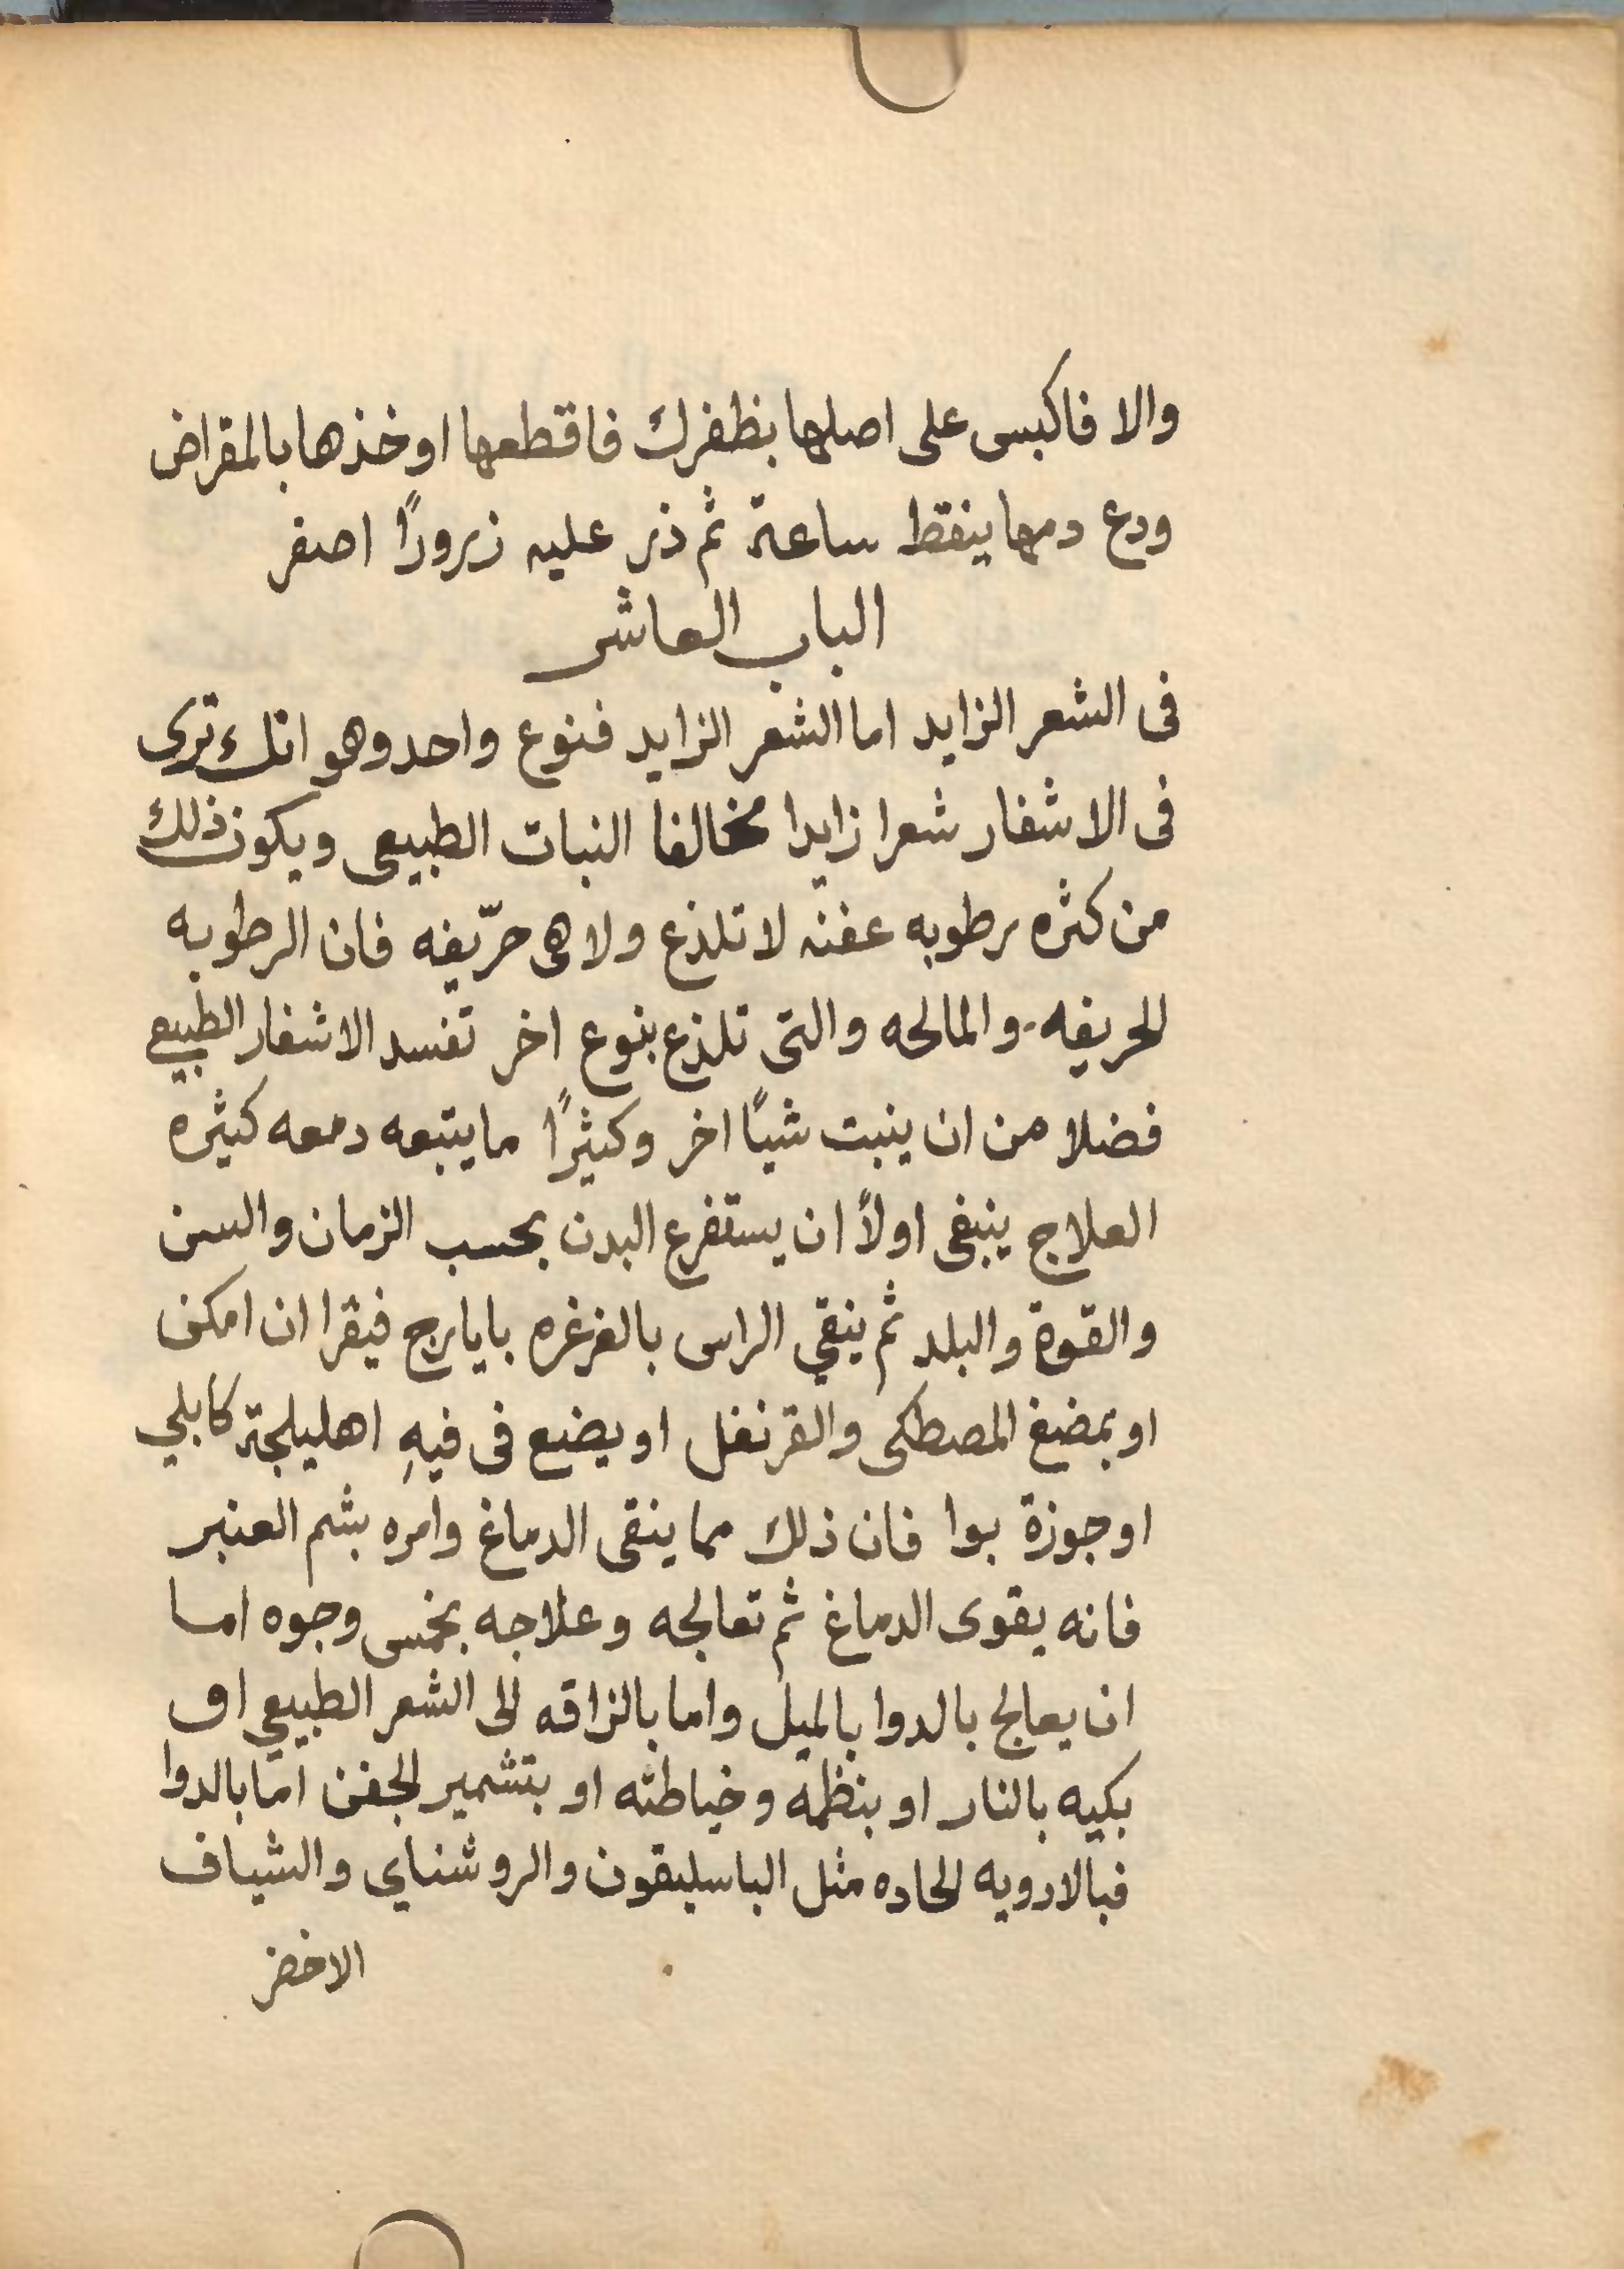 والا فاكبس على اصلها بظفرك فاقطعها اوخذها بالمقراض
ودع دمها ينقط ساعة ثم ذر عليه زرورًا اصفر
الباب العاشر
فى الشعر الزايد اما الشعر الزايد فنوع واحد وهو انك ترى
فى الاشفار شعرا زايدا مخالفا النبات الطبيعى ويكون ذلك
من كثره رطوبه عفنه لا تلذع ولا هى حرّيفه فان الرطوبه
الحريفه والمالحه والتى تلذع بنوع اخر تفسد الاشفار الطبيعي
فضلا من ان ينبت شيًا اخر وكثيرًا ما يتبعه دمعه كثيره
العلاج ينبغى اولاً ان يستفرع البدن بحسب الزمان والسن
والقوة والبلد ثم ينقي الراس بالغرغره بايارج فيقرا ان امكن
او بمضغ المصطكى والقرنفل او يضع فى فيهِ اهليلجة كابلي
او جوزة بوا فان ذلك مما ينقى الدماغ وامره بشم العنبر
فانه يقوى الدماغ ثم تعالجه وعلاجه بخمس وجوه اما
ان يعالج بالدوا بالميل واما بالزاقه الى الشعر الطبيعي او
بكيه بالنار او بنظمه وخياطته او بتشمير الجفن اما بالدوا
فبالادويه الحاده مثل الباسليقون والروشناي والشياف
الاخضر